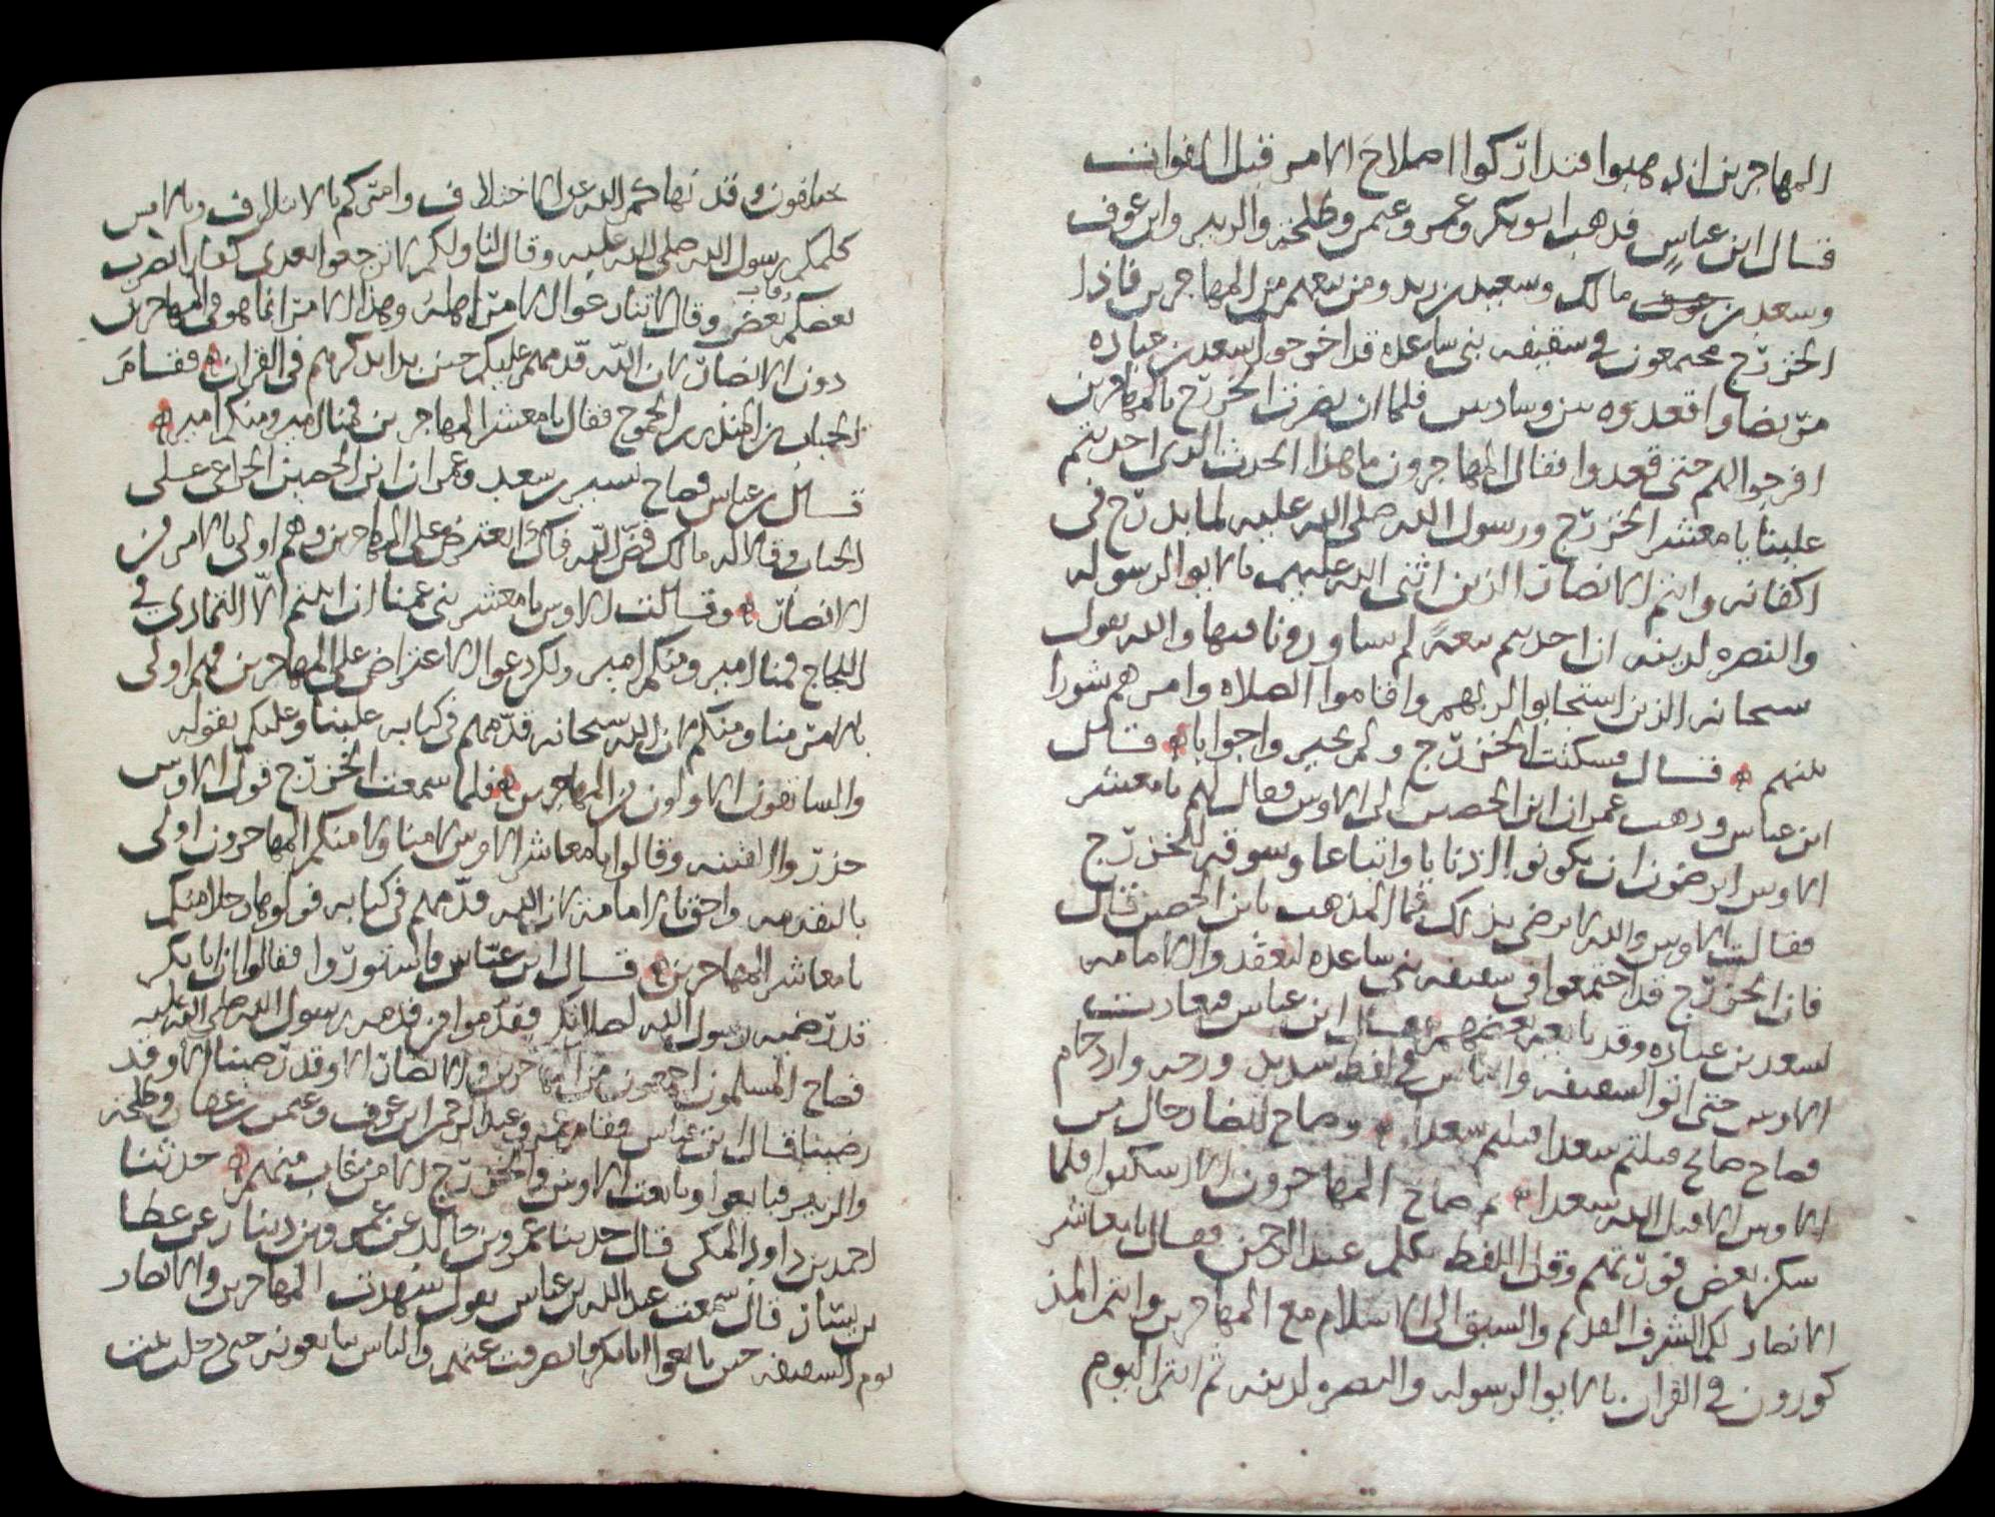 المهاجرين ان اذهبوا فتداركوا اصلاح الامر قبل الفوات
قال ابن عباس فذهب ابو بكر وعمر وعثمن وطلحة والزبير وابن عوف
وسعد بن مالك وسعيد بن زيد ومن معهم من المهاجرين فاذا
الخزرج مجتمعون في سقيفه بني ساعده قد اخرجوا سعد بن عباده
مريضا واقعدوه بين وسادتين فلما ان بصرت الخزرج بالمهاجرين
افرجوا لهم حتى قعدوا فقال المهاجرون ما هذا الحدث الذي احدثتم
علينا يا معشر الخزرج ورسول الله صلى الله عليه لما يدرج في
اكفانه وانتم الانصار الذين اثنى الله عليهم بالايوا لرسوله
والنصره لدينه ان احدثتم بيعة لم تشاورونا فيها والله يقول
سبحانه الذين استجابوا لربهم واقاموا الصلاه وامرهم شورا
بينهم قال فسكتت الخزرج ولم يحيروا جوابا قال
ابن عباس وذهب عمران ابن الحصين الى الاوس فقال لهم يا معشر
الاوس اترضون ان تكونوا اذنابا واتباعا وسوقه للخزرج
فقالت الاوس والله لا نرضى بذلك فما المذهب يا بن الحصين قال
فان الخزرج قد اجتمعوا في سقيفه بني ساعده ليعقدوا الامامه
لسعد بن عباده وقد بايعه بعضهم فقال ابن عباس فتعادت
الاوس حتى اتوا السقيفه والناس في لغط شديد ورجه وازدحام
فصاح صائح قتلتم سعدا قتلتم سعدا وصاح ايضا رجال من
الاوس الا قتل الله سعدا ثم صاح المهاجرون الا اسكتوا فلما
سكن بعض فورتهم وقل اللغط تكلم عبد الرحمن فقال يا معاشر
الانصار لكم الشرف القديم والسبق الى الاسلام مع المهاجرين وانتم المذ
كورون في القران بالايوا لرسوله والنصره لدينه ثم انتم اليوم
تختلفون وقد نهاكم الله عن الاختلاف وامركم بالائتلاف وبالامس
كلمكم رسول الله صلى الله عليه وقال لنا ولكم لا ترجعوا بعدي كفارا يضرب
بعضكم رقاب بعض وقال لا تنازعوا الامر اهله وهذا الامر انما هو في المهاجرين
دون الانصار لان الله قدمهم عليكم حين بدا بذكرهم في القران فقام
الحباب بن المنذر بن الجموح فقال يا معشر المهاجرين فمنا امير ومنكم امير
قال بن عباس فصاح بشير بن سعد وعمران ابن الحصين الخزاعي على
الحباب وقالا له مالك فض الله فاك اتعترض على المهاجرين وهم اولى بالامر من
الانصار وقالت الاوس يا معشر بني عمنا ان ابيتم الا التمادي في
اللجاج فمنا امير ومنكم امير ولكن دعوا الاعتراض على المهاجرين فهم اولى
بالامر منا ومنكم لان الله سبحانه قدمهم في كتابه علينا وعليكم بقوله
والسابقون الاولون من المهاجرين فلما سمعت الخزرج قول الاوس
حذروا الفتنه وقالوا يا معاشر الاوس لا منا ولا منكم المهاجرون اولى
بالتقدمه واحق بالامامة لان الله قدمهم في كتابه فولوها رجلا منكم
يا معاشر المهاجرين قال ابن عباس فاشتوروا فقالوا ان ابا بكر
قد رضيه رسول الله لصلاتكم فقدموا من قدمه رسول الله صلى الله عليه
فصاح المسلمون اجمعون من المهاجرين والانصار الا وقد رضينا الا وقد
رضينا قال ابن عباس فقام عمر وعبد الرحمن ابن عوف وعثمن بن عفان وطلحة
والزبير فبايعوا وبايعت الاوس والخزرج الا من غاب منهم حدثنا
احمد بن داود المكي قال حدثنا عمرو بن خالد عن عمرو بن دينار عن عطا
بن يسار قال سمعت عبد الله بن عباس يقول شهدت المهاجرين والانصار
يوم السقيفه حين بايعوا ابا بكر وانصرفت عنهم والناس يبايعونه حتى دخلت بيت